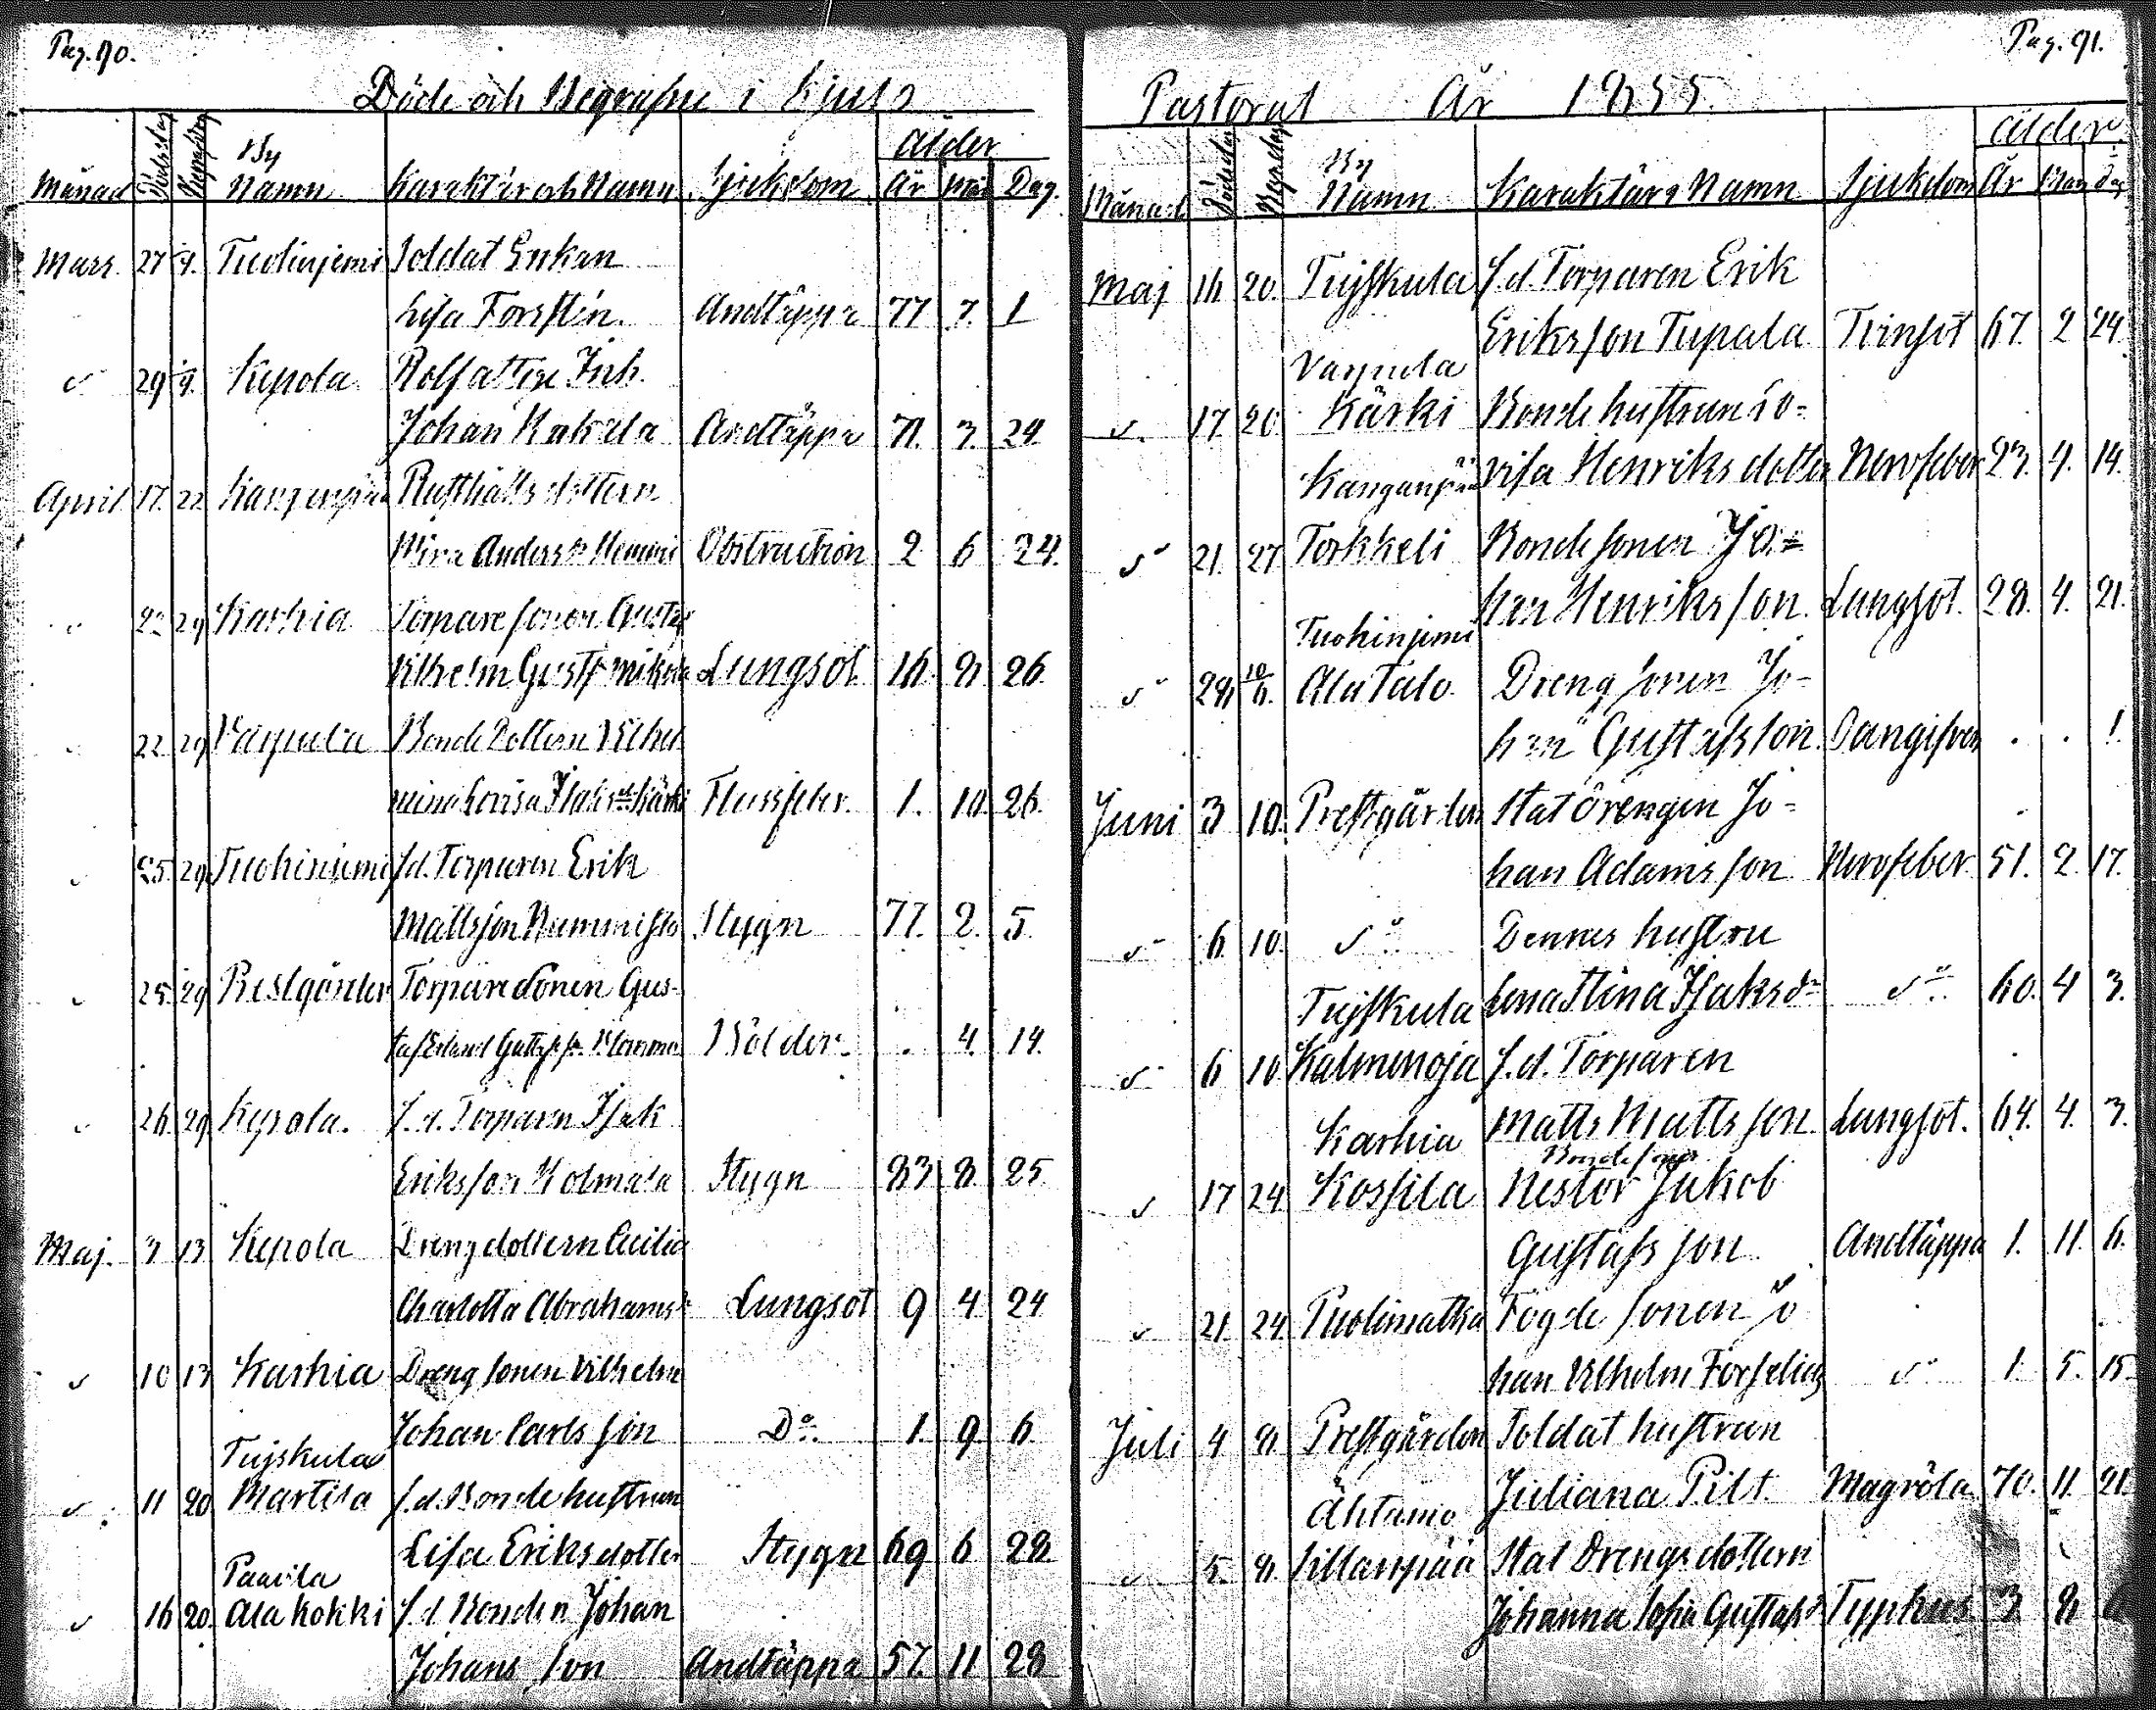 Pag. 90.
Döde och Begrafne i Kjulo
Månad Dödsdag Begrafning By Namn Karaktär och Namn Sjukdom Ålder År Mån Dag.
Mars 27 9. Tuohinjemi Soldat Enkan
Lisa Forstén. Andtäppa 77 7. 1
29 9. Kepola
Johan Andtäppa 71. 3. 24.
April 17. 22 Rusthålls dottern
Anders Obstruction 2 6 24.
22 29 Karhia Torpare sonen Gustaf
Vilhelm Gustfs Lungsot 16. 8 26.
22 29 Vappula Bonde dottern Vilhel
mina Lovisa Isaksdr Kärki Flussfeber. 1. 10. 26.
25 29 Tuohiniemi f.d. Torparen Erik
Mattsson Nummisto Stygn 77. 2. 5.
25. 29 Prestgården Torpare sonen Gus-
taf Erland Gustafss. Bölder. . 4. 14.
26. 29 Kepola. f.d. Torparen Isak
Eriksson Stygn 83 8. 25
Maj. 3 13 Kepola Drengdottern Cecilia
Charlotta Abrahamsdr Lungsot 9 4 24
10 13 Karhia Dreng sonen Vilhelm
Johan Carlsson Do 1. 9 6
Tujskula
11 20 Martila f.d. Bonde hustrun
Lisa Eriksdotter Stygn 69 6 28
Paavila
16 20. Ala Kokki f.d. Bonden Johan
Johansson Andtäppa 57. 11 28
Pag. 91.
Pastorat År 1855.
Månad Dödsdag Begrdag By Namn Karaktär o Namn Sjukdom Ålder År Mån Dag
Maj 16 20. Tujskula f.d. Torparen Erik
Eriksson Tupala Tvinsot 67. 2 24.
Vappula
17 20 Kärki Bonde hustrun Lo-
visa Henriksdotter Nervfeber 23. 4. 14.
Kanganpää
do 21. 27 Torkkeli Bonde sonen Jo-
han Henriksson. Lungsot. 28. 4. 21.
Tuohinjemi
do 28 10/6. Ala Talo Dreng sonen Jo-
han Gustafsson. . . 1.
Juni 3 10. Prestgården Statdrengen Jo-
han Adamsson Nervfeber 51. 2. 17.
do 6 10. do Dennes hustru
Lena Stina Isaksdr do 60. 4 3.
Tujskula
do 6 10 Kalmenoja f.d. Torparen
Matts Mattsson Lungsot. 64. 4. 3.
Karhia Bondesonen
17 24 Kossila Nestor Jakob
Gustafsson Andtäppa 1. 11. 6.
21. 24. Puolimatka Fogde sonen Jo
han Vilhelm Forselius do 1. 5. 15.
Juli 4 8. Prestgården Soldat hustrun
Juliana Pilt Magröta 70. 11. 21.
Ähtämo
5. 8. Sillanpää Stat Drengs dottern
Johanna Sofia Gustafsdr Typhus 3 8